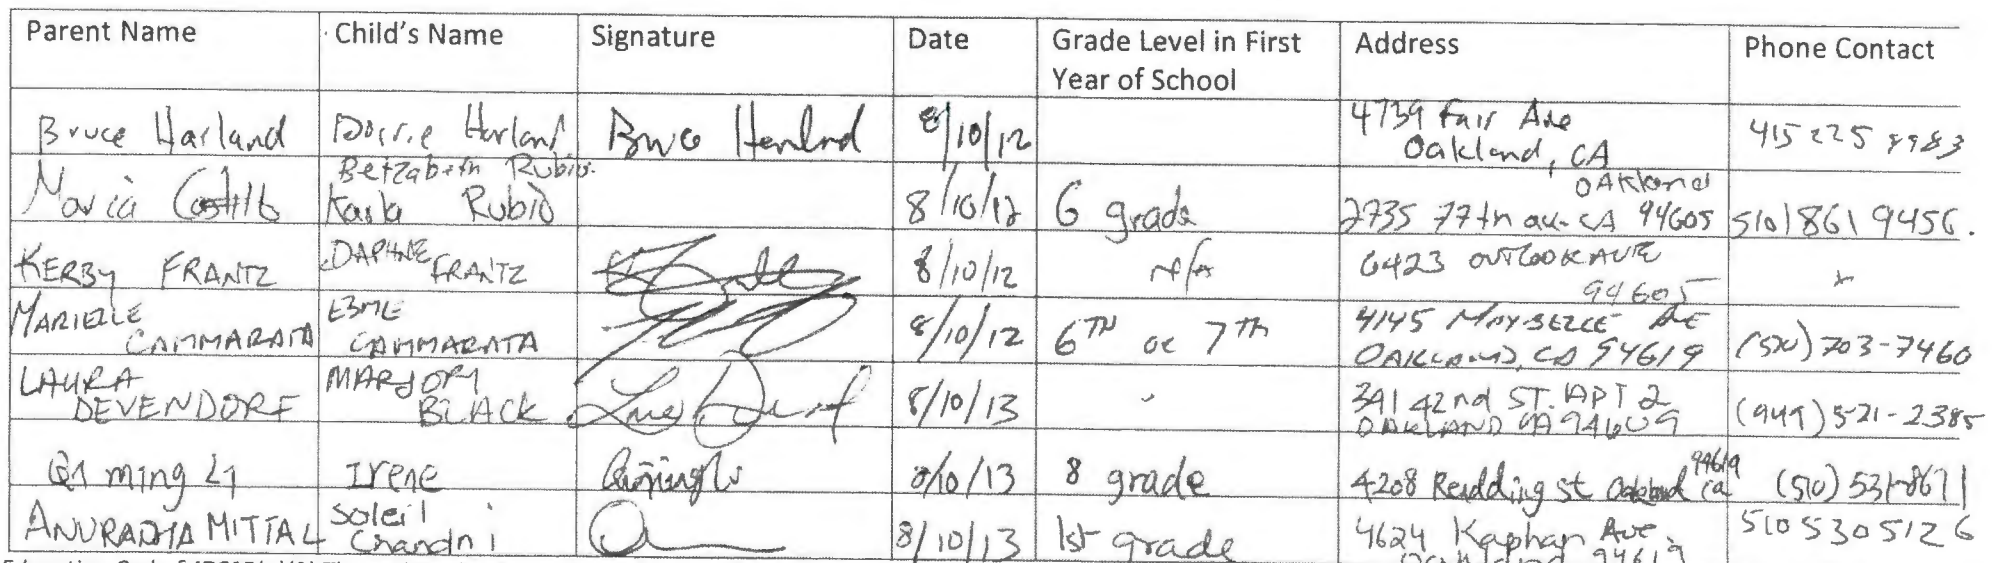 Parent Name Child's Name Signature Date Grade Level in First Year of School Address Phone Contact
Bruce Harland Dorrie Harland 8/10/12 4739 Fair Ave
Oakland, CA 415 225 8983
Betzabeth Rubio.
Maria Castillo Karla Rubio 8/10/12 6 grade 2735 77th av. CA 94605 Oakland 510 861 9456.
KERBY FRANTZ DAPHNE FRANTZ 8/10/12 N/A 6423 OUTLOOK AVE
94605
MARIELLE CAMMARATA ESME CAMMARATA 8/10/12 6TH or 7TH 4145 MAYBELLE AVE
OAKLAND, CA 94619 (510) 703-7460
LAURA DEVENDORF MARJORY BLACK 8/10/13 391 42nd ST. APT 2
OAKLAND CA 94609 (949) 521-2385
Qi ming Li Irene 8/10/13 8 grade 4208 Redding st Oakland ca 94619 (510) 531-8671
ANURADHA MITTAL Soleil Chandni 8/10/13 1st grade 4624 Kaphan Ave
Oakland 94619 510 530 5126